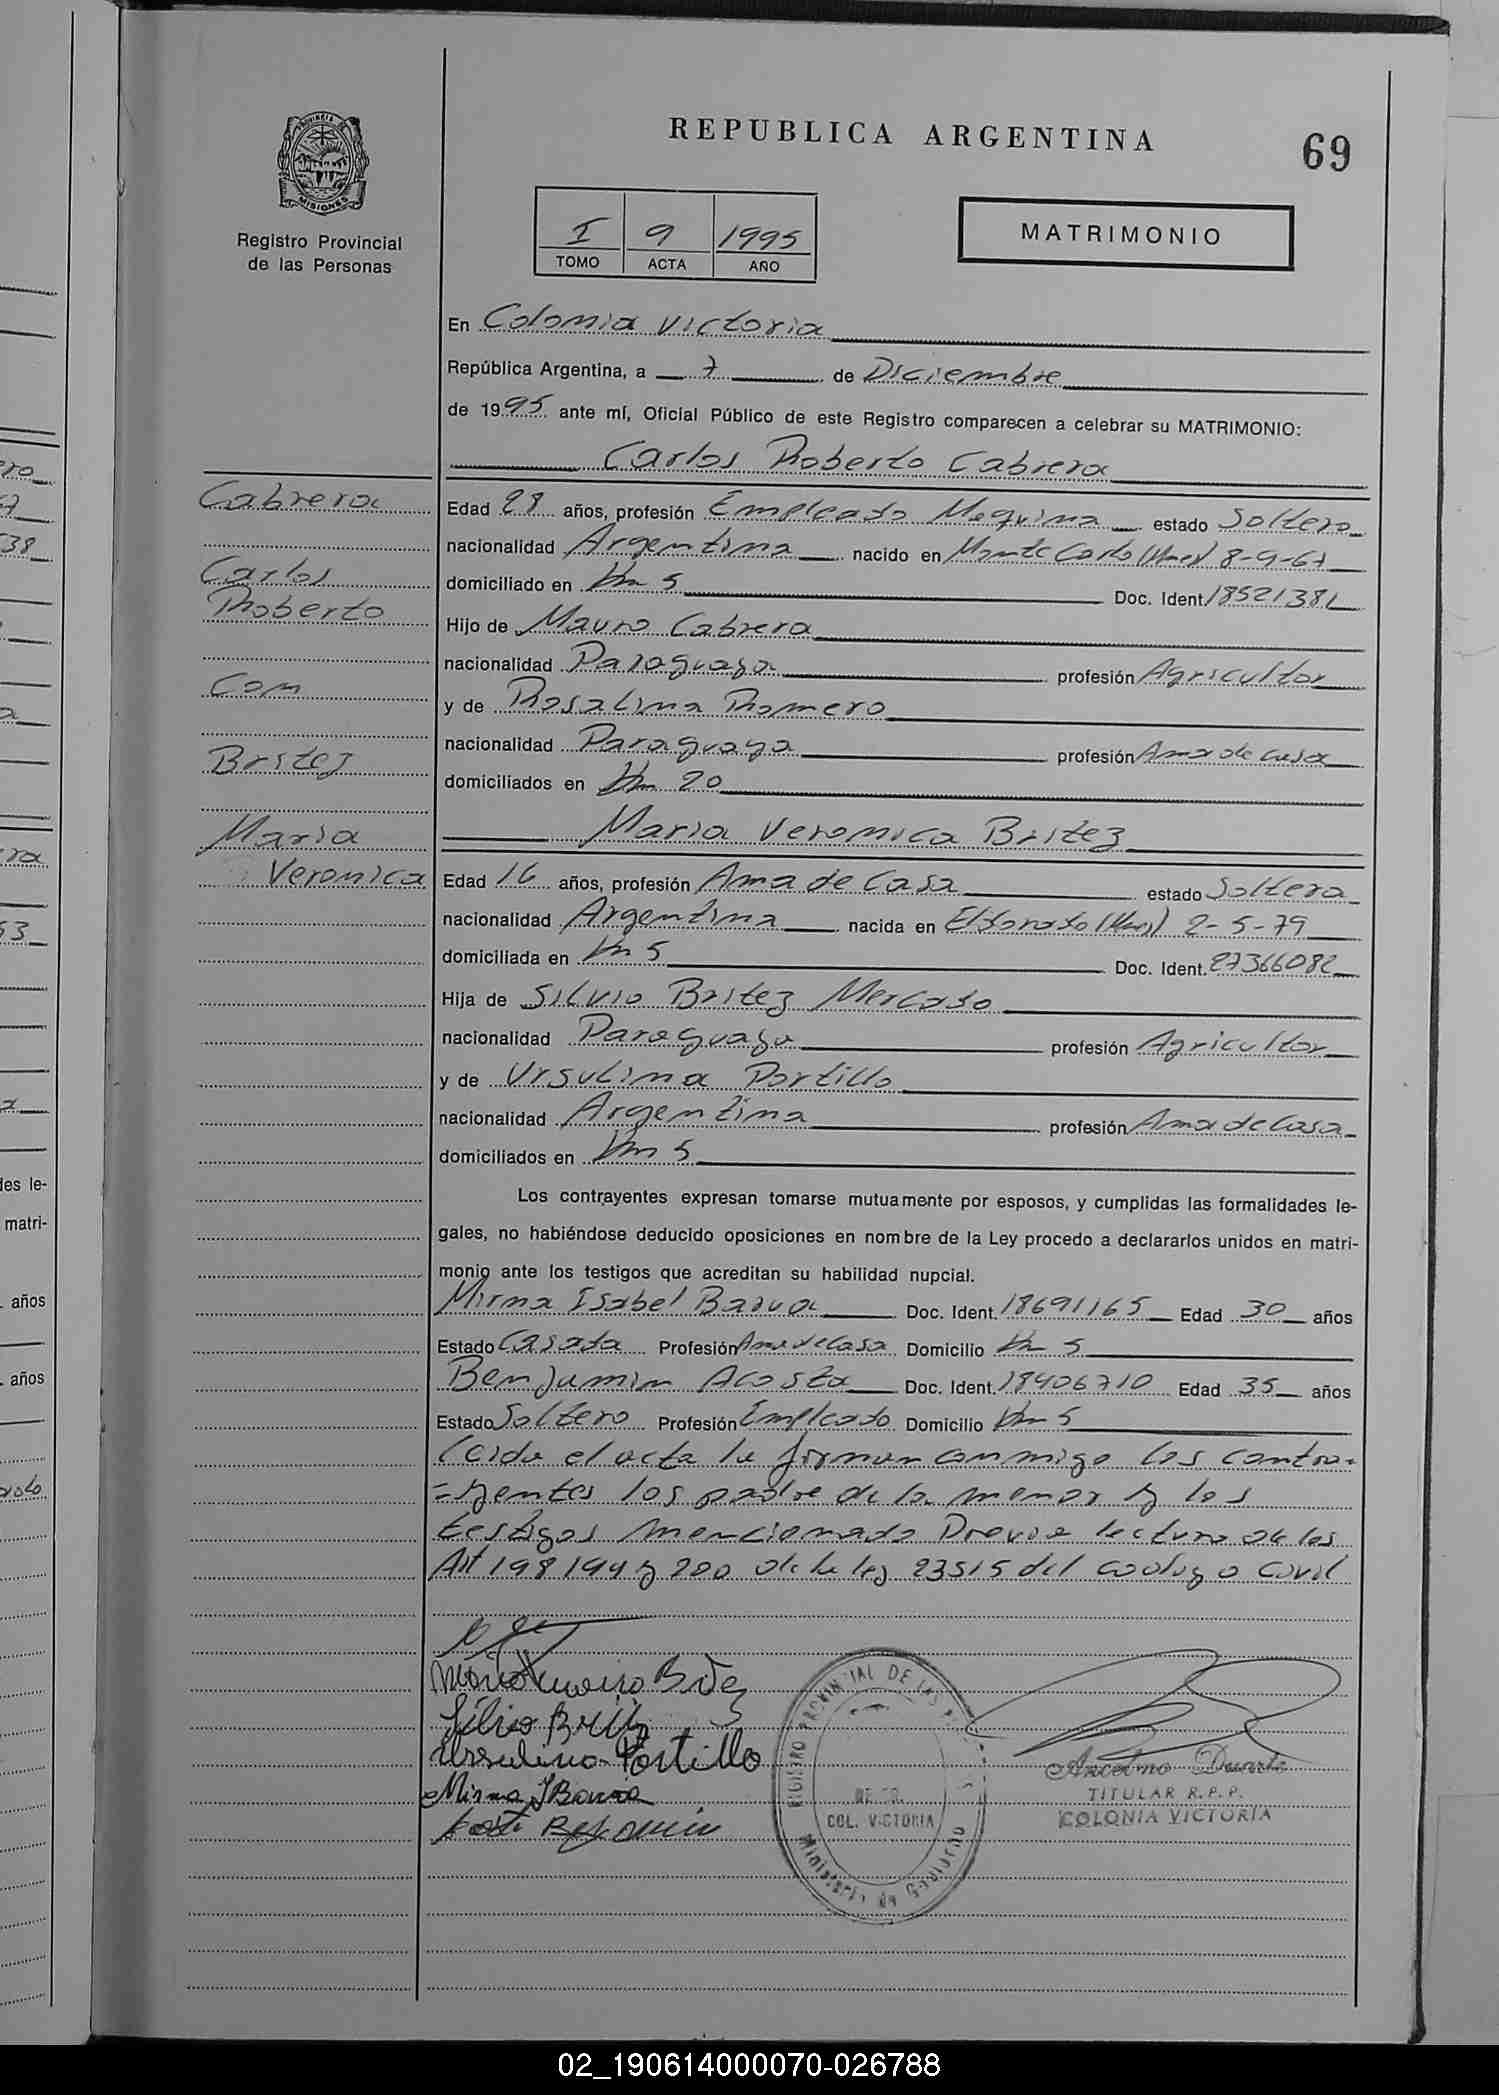 REPUBLICA ARGENTINA
69
PROVINCIA DE
MISIONES
Registro Provincial
de las Personas
I 9 1995
TOMO ACTA AÑO
MATRIMONIO
En Colonia Victoria
República Argentina, a 7 de Diciembre
de 1995 ante mí, Oficial Público de este Registro comparecen a celebrar su MATRIMONIO:
Carlos Roberto Cabrera
Cabrera
Carlos
Roberto
Con
Britez
Maria
Veronica
Edad 28 años, profesión Empleado Maquina estado Soltero
nacionalidad Argentina nacido en Monte Carlo (Mnes) 8-9-67
domiciliado en Km 5 Doc. Ident. 18521381
Hijo de Mauro Cabrera
nacionalidad Paraguaya profesión Agricultor
y de Rosalina Romero
nacionalidad Paraguaya profesión Ama de Casa
domiciliados en Km 20
Maria Veronica Britez
Edad 16 años, profesión Ama de Casa estado Soltera
nacionalidad Argentina nacida en Eldorado (Mnes) 2-5-79
domiciliada en Km 5 Doc. Ident. 27366082
Hija de Silvio Britez Mercado
nacionalidad Paraguaya profesión Agricultor
y de Ursulina Portillo
nacionalidad Argentina profesión Ama de Casa
domiciliados en Km 5
Los contrayentes expresan tomarse mutuamente por esposos, y cumplidas las formalidades le-
gales, no habiéndose deducido oposiciones en nombre de la Ley procedo a declararlos unidos en matri-
monio ante los testigos que acreditan su habilidad nupcial.
Mirna Isabel Barua Doc. Ident. 18691165 Edad 30 años
Estado Casada Profesión Ama de Casa Domicilio Km 5
Benjamin Acosta Doc. Ident. 18406710 Edad 35 años
Estado Soltero Profesión Empleado Domicilio Km 5
Leida el acta la firman conmigo los contra=
=yentes los padre de la menor y los
testigos mencionado Previa lectura de los
Art 198 199 y 200 de la ley 23515 del codigo Civil
Silvio Britez
Ursulina Portillo
Mirna I Barua
REGISTRO PROVINCIAL DE LAS
COL. VICTORIA
Ministerio de Gobierno
Ancelmo Duarte
TITULAR R.P.P.
COLONIA VICTORIA
02_190614000070-026788